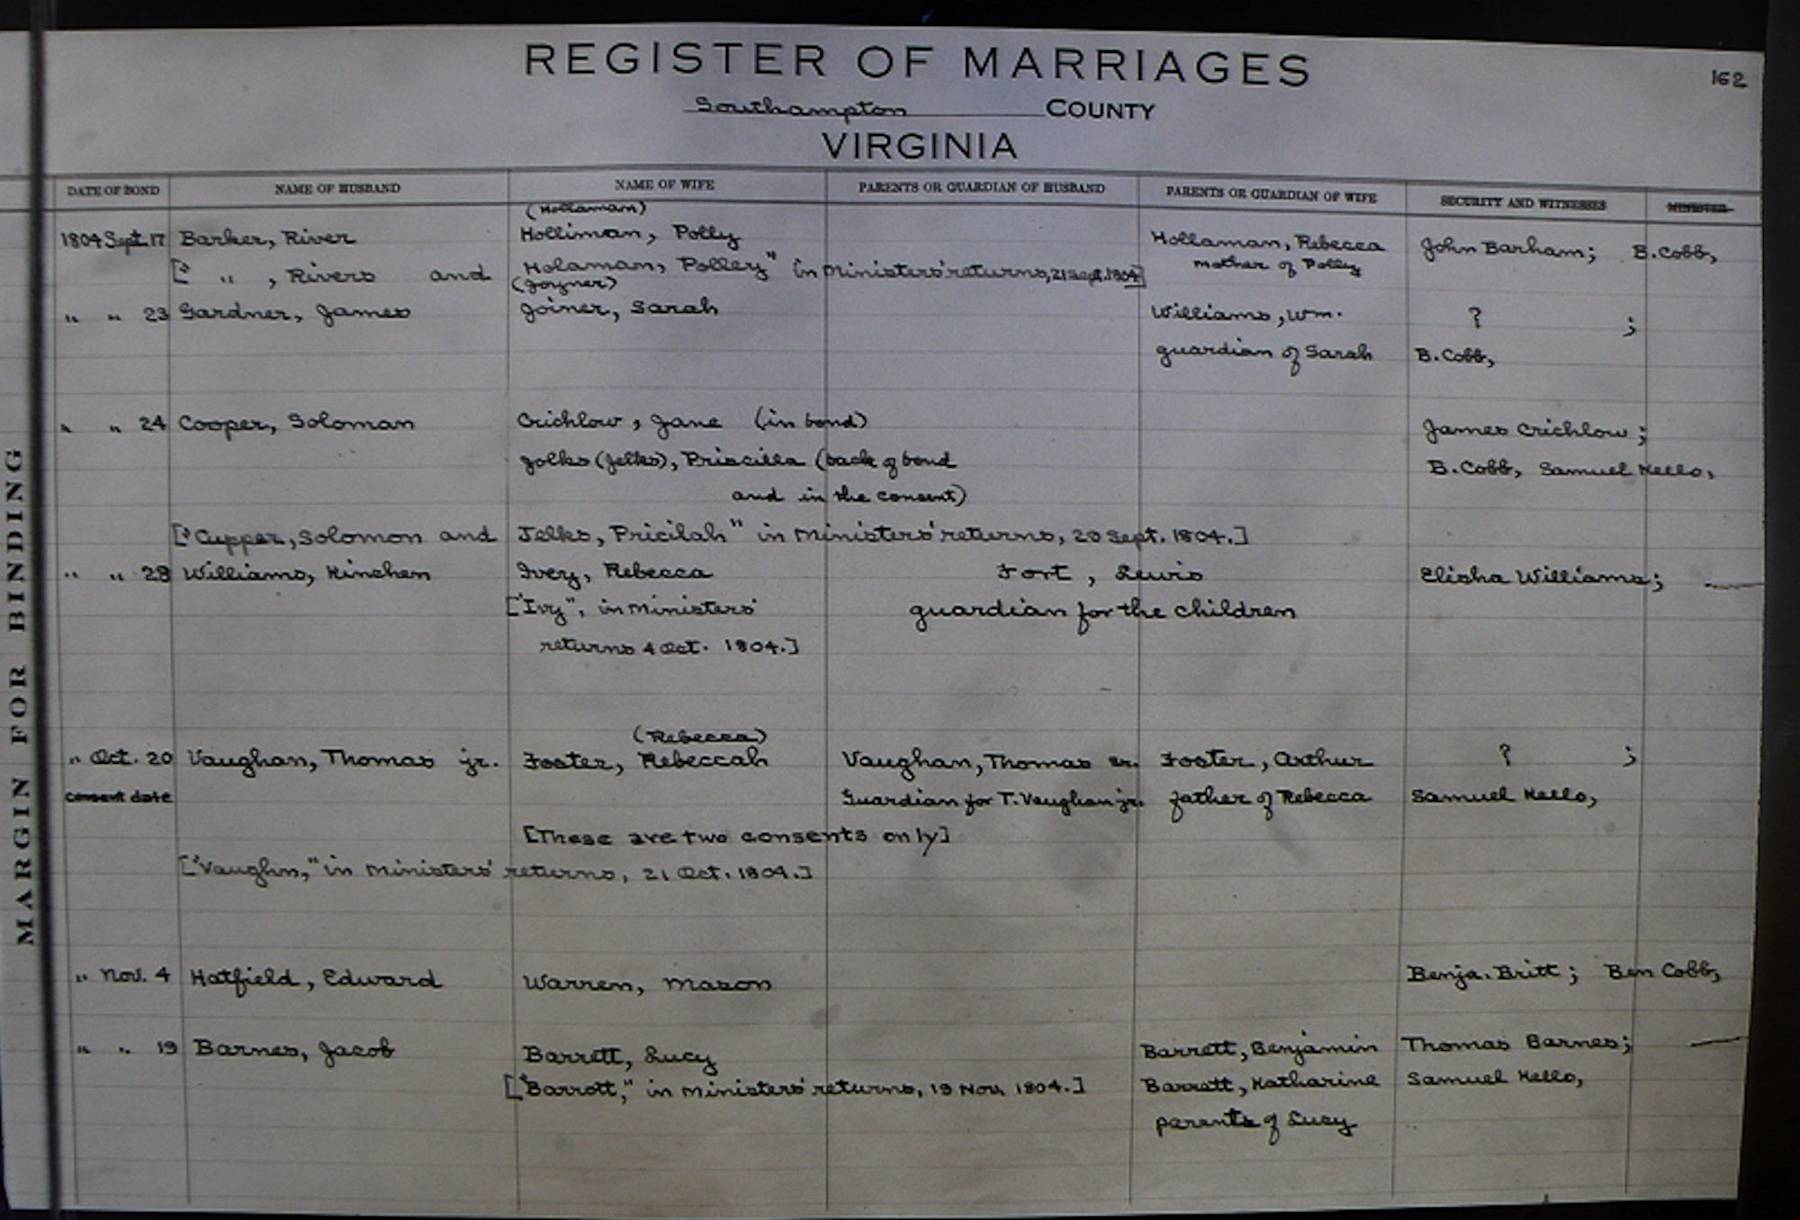 REGISTER OF MARRIAGES
162
Southampton COUNTY
VIRGINIA
DATE OF BOND NAME OF HUSBAND NAME OF WIFE PARENTS OR GUARDIAN OF HUSBAND PARENTS OR GUARDIAN OF WIFE SECURITY AND WITNESSES MINISTER
(Hollaman)
1804 Sept. 17 Barker, River Holliman, Polly Hollaman, Rebecca John Barham; B. Cobb,
mother of Polly
[" " , Rivers and Holaman, Polley" in Ministers' returns, 21 Sept. 1804]
(Joyner)
" " 23 Gardner, James Joiner, Sarah Williams, Wm. ? ;
guardian of Sarah B. Cobb,
" " 24 Cooper, Soloman Crichlow, Jane (in bond) James Crichlow;
Jolks (Jelks), Priscilla (back of bond B. Cobb, Samuel Kello,
and in the consent)
["Cupper, Solomon and Jelks, Pricilah" in Ministers' returns, 20 Sept. 1804.]
" " 28 Williams, Kinchen Ivey, Rebecca Fort, Lewis Elisha Williams; —
["Ivy", in Ministers' guardian for the children
returns 4 Oct. 1804.]
(Rebecca)
" Oct. 20 Vaughan, Thomas jr. Foster, Rebeccah Vaughan, Thomas sr. Foster, Arthur ? ;
consent date Guardian for T. Vaughan jr. father of Rebecca Samuel Kello,
[These are two consents only]
["Vaughn," in Ministers' returns, 21 Oct. 1804.]
" Nov. 4 Hatfield, Edward Warren, Mason Benja. Britt; Ben Cobb,
" " 19 Barnes, Jacob Barrett, Lucy Barrett, Benjamin Thomas Barnes; —
["Barrott," in Ministers' returns, 19 Nov. 1804.] Barrett, Katharine Samuel Kello,
parents of Lucy
MARGIN FOR BINDING